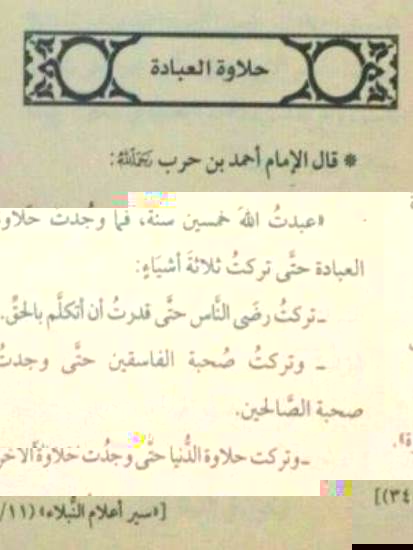 حلاوة العبادة
* قال الإمام أحمد بن حرب رَحِمَهُ اللَّهُ:
«عبدتُ اللهَ خمسين سنة، فما وجُدت حَلاوة
العبادة حتَّى تركتُ ثلاثةَ أشيَاءٍ:
ـ تركتُ رضَى النَّاس حتَّى قدرتُ أن أتكلَّم بالحَقِّ.
ـ وتركتُ صُحبة الفاسقين حتَّى وجدتُ
صحبة الصَّالحين.
ـ وتركت حلاوة الدُّنيا حتَّى وجدُت حَلاوَة الآخرة».
[«سير أعلام النُّبلاء» (١١/٣٤)]